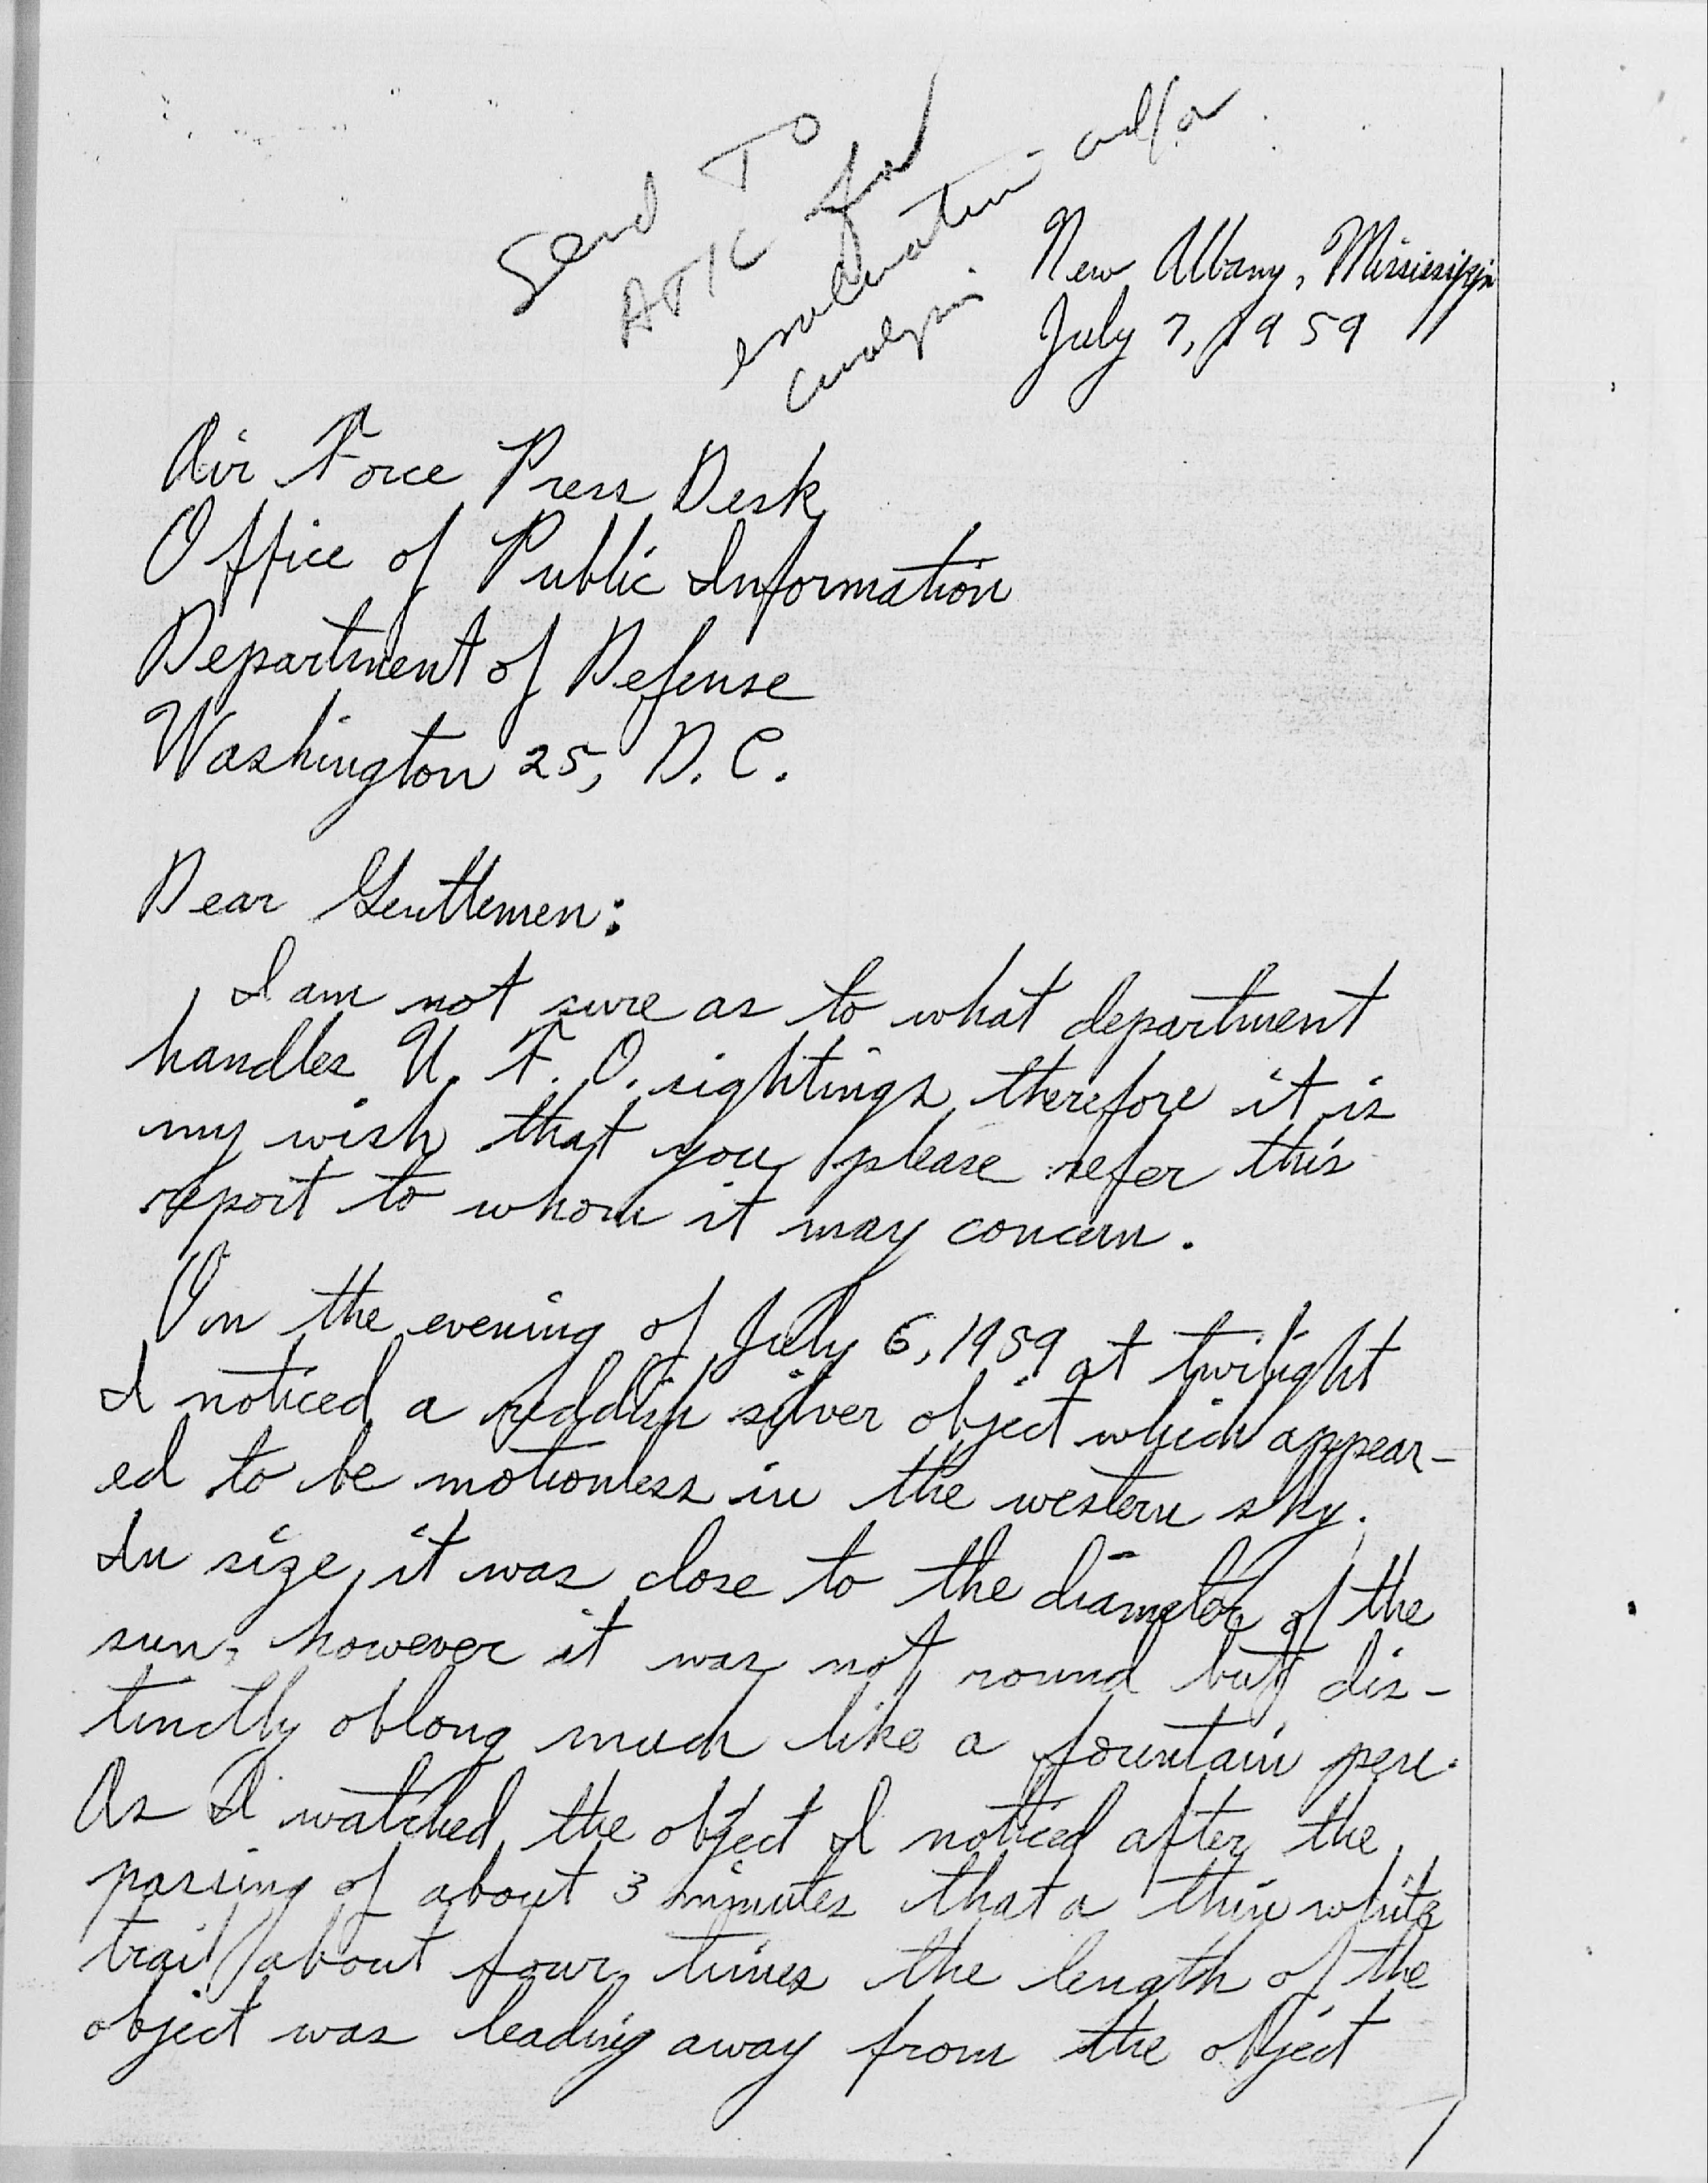 Send To
ATIC for
evaluation and/or
analysis.
New Albany, Mississippi
July 7, 1959
Air Force Press Desk
Office of Public Information
Department of Defense
Washington 25, D.C.
Dear Gentlemen:
I am not sure as to what department
handles U. F. O. sightings, therefore it is
my wish that you please refer this
report to whom it may concern.
On the evening of July 6, 1959 at twilight
I noticed a reddish silver object which appear-
ed to be motionless in the western sky.
In size, it was close to the diameter of the
sun, however it was not round but dis-
tinctly oblong much like a fountain pen.
As I watched the object I noticed after the
passing of about 3 minutes that a thin white
trail about four times the length of the
object was leading away from the object